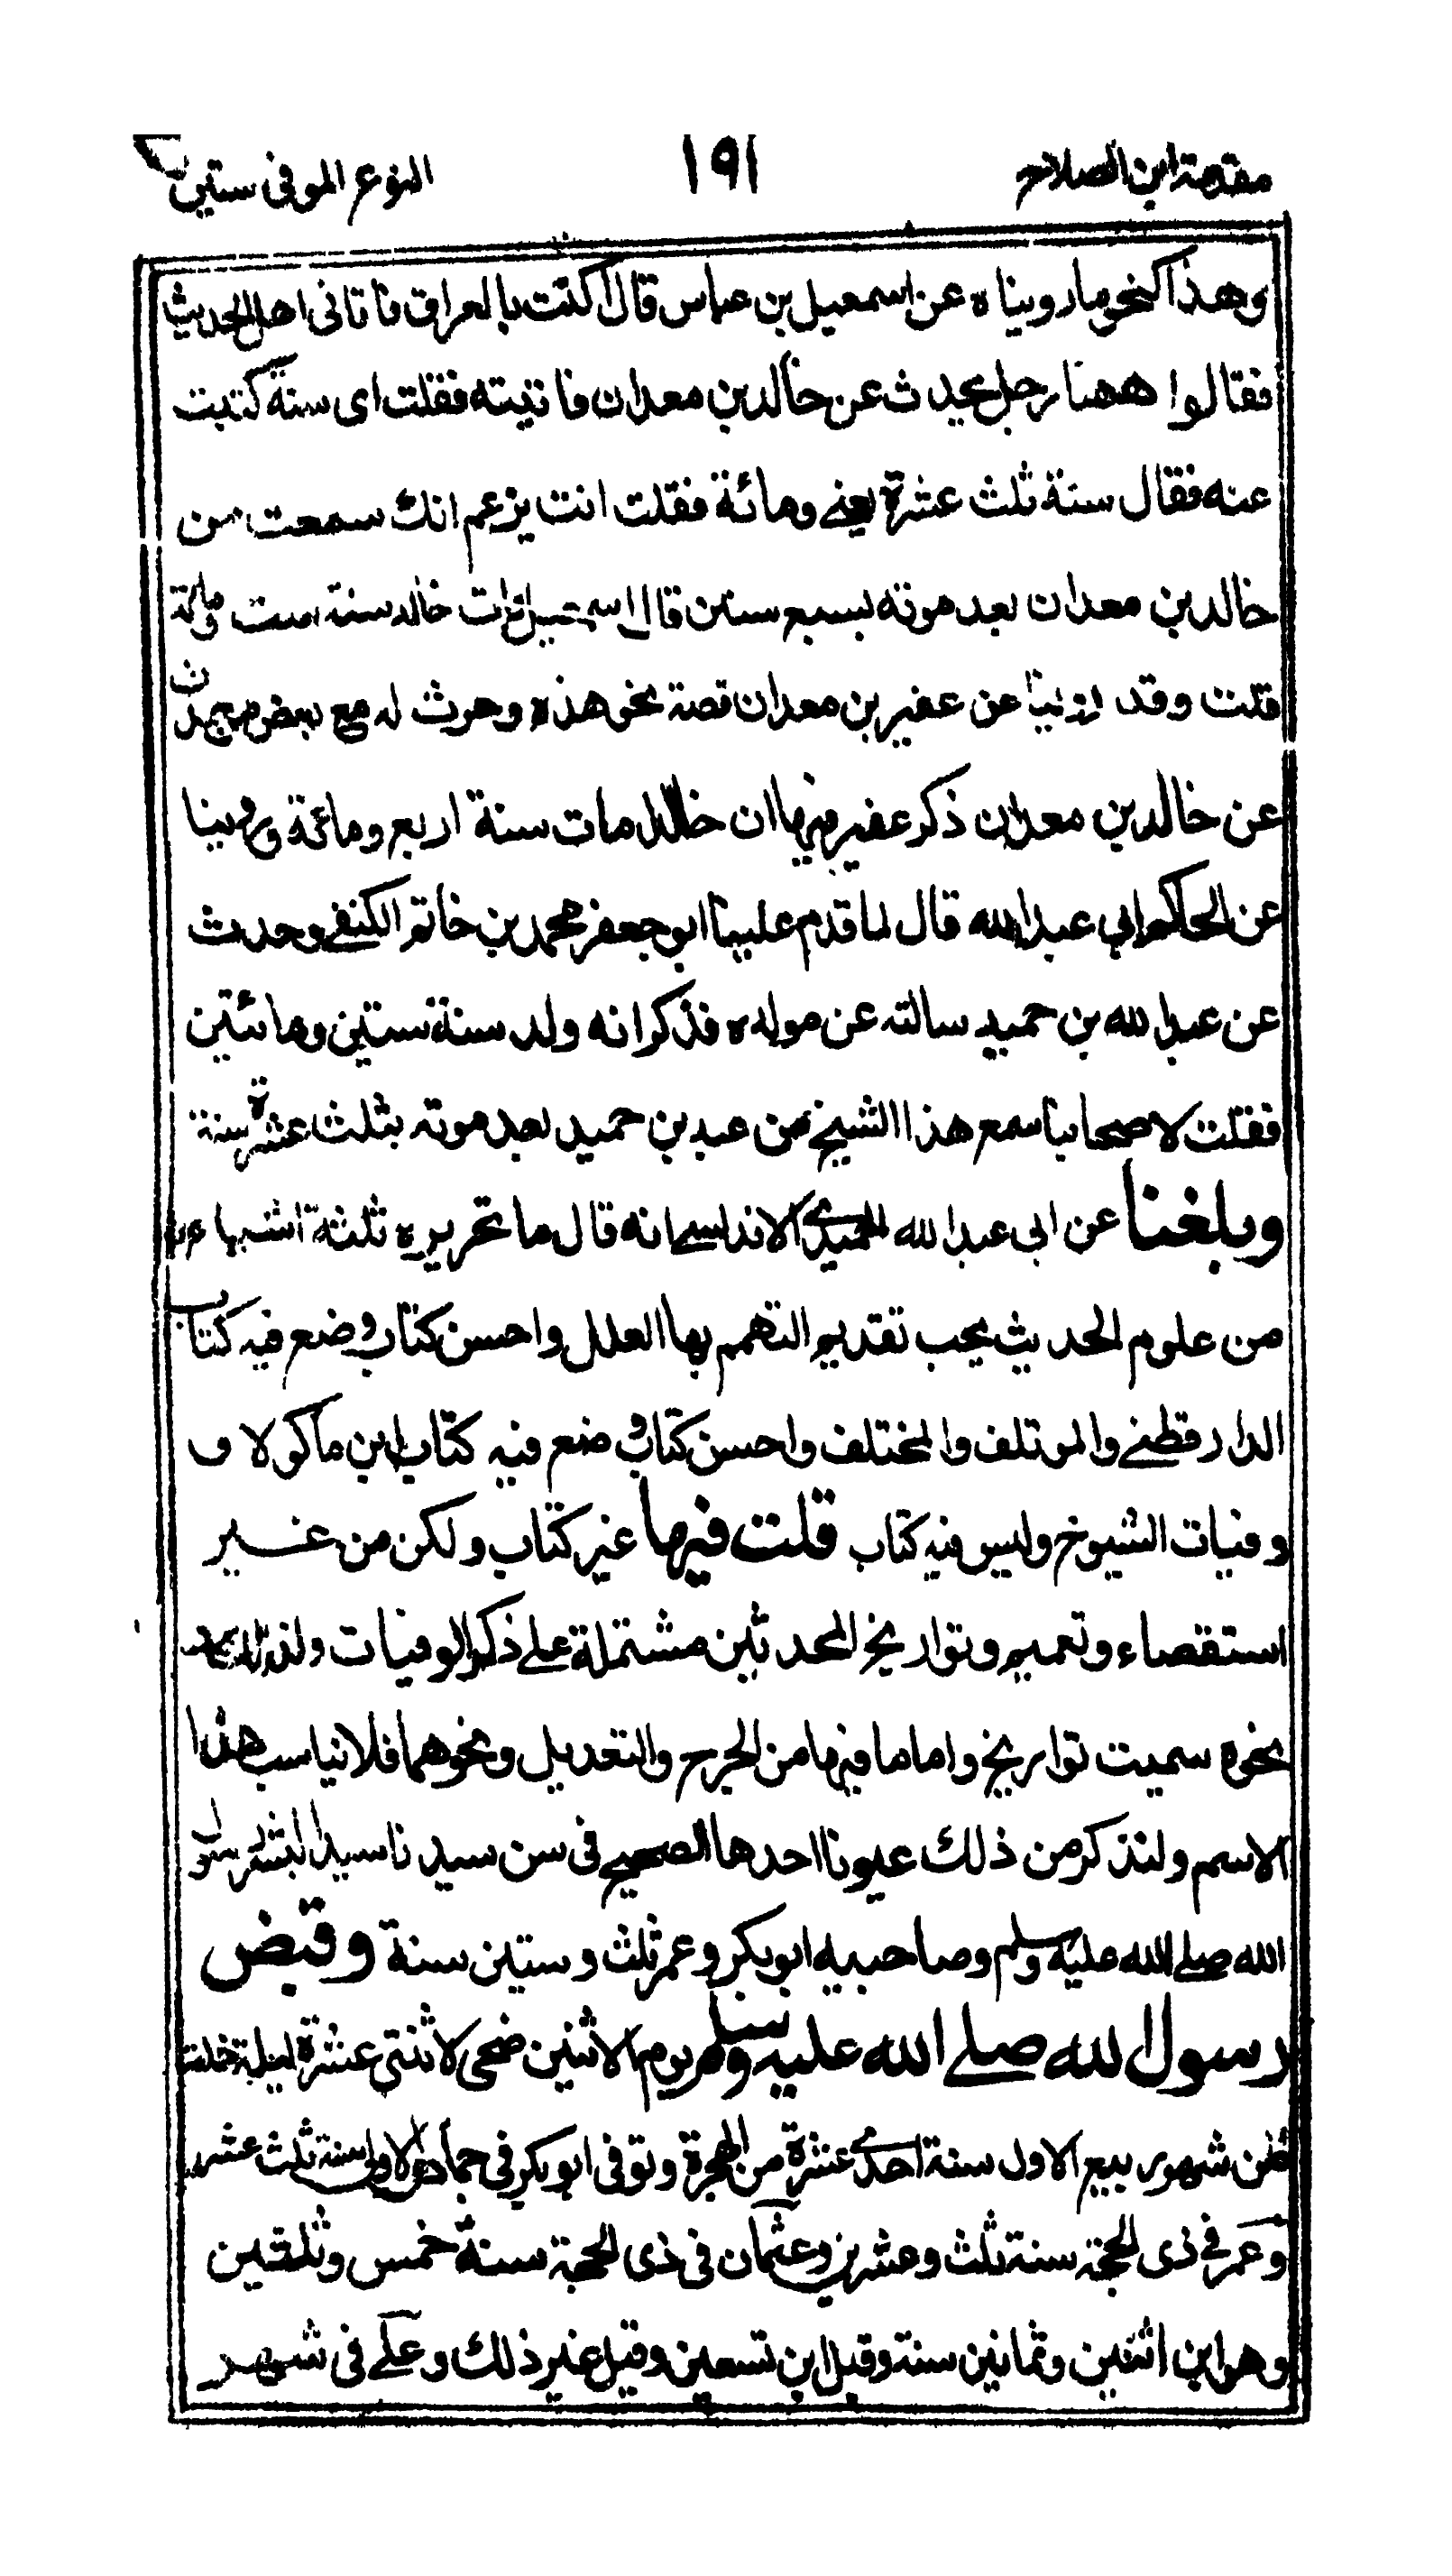 مقدمة ابن الصلاح ١٩١ النوع الموفى ستين
وهذا كنحو ما رويناه عن اسمعيل بن عياش قال كنت بالعراق فاتانى اهل الحديث
فقالوا ههنا رجل يحدث عن خالد بن معدان فاتيته فقلت اى سنة كتبت
عنه فقال سنة ثلث عشرة يعني ومائة فقلت انت يزعم انك سمعت من
خالد بن معدان بعد موته بسبع سنين قال اسمعيل مات خالد سنة ست ومائة
قلت وقد روينا عن عفير بن معدان قصة نحو هذه وحرث له مع بعض من حدث
عن خالد بن معدان ذكر عفير فيها ان خالدا مات سنة اربع ومائة وروينا
عن الحاكم ابي عبد الله قال لما قدم علينا ابو جعفر محمد بن خاتم الكنفي وحدث
عن عبد الله بن حميد سالته عن مولده فذكر انه ولد سنة ستين ومائتين
فقلت لاصحابنا سمع هذا الشيخ من عبد بن حميد بعد موته بثلث عشرة سنة
وبلغنا عن ابى عبد الله الحميدي الاندلسي انه قال ما تحريره ثلثة اشياء
من علوم الحديث يجب تقديم التهمم بها العلل واحسن كتاب وضع فيه كتاب
الدارقطني والموتلف والمختلف واحسن كتاب وضع فيه كتاب ابن ماكولا و
وفيات الشيوخ وليس فيه كتاب قلت فيها غير كتاب ولكن من غير
استقصاء وتعميم وتواريخ المحدثين مشتملة علے ذكر الوفيات ولذلك
نحوه سميت تواريخ واما ما فيها من الجرح والتعديل ونحوهما فلا يناسب هذا
الاسم ولنذكر من ذلك عيونا احدها الصحيح فى سن سيدنا سيد البشر رسول
الله صلے الله عليه وسلم وصاحبيه ابو بكر وعمر ثلث وستين سنة وقبض
رسول الله صلے الله عليه وسلم يوم الاثنين ضحى لاثنتى عشرة ليلة خلت
من شهر ربيع الاول سنة احدے عشرة من الهجرة وتوفى ابو بكر فى جمادى الاولى سنة ثلث عشرة
وعمر في ذى الحجة سنة ثلث وعشرين وعثمان فى ذى الحجة سنة خمس وثلثين
وهو ابن اثنين وثمانين سنة وقيل ابن تسعين وقيل غير ذلك وعلے فى شهر